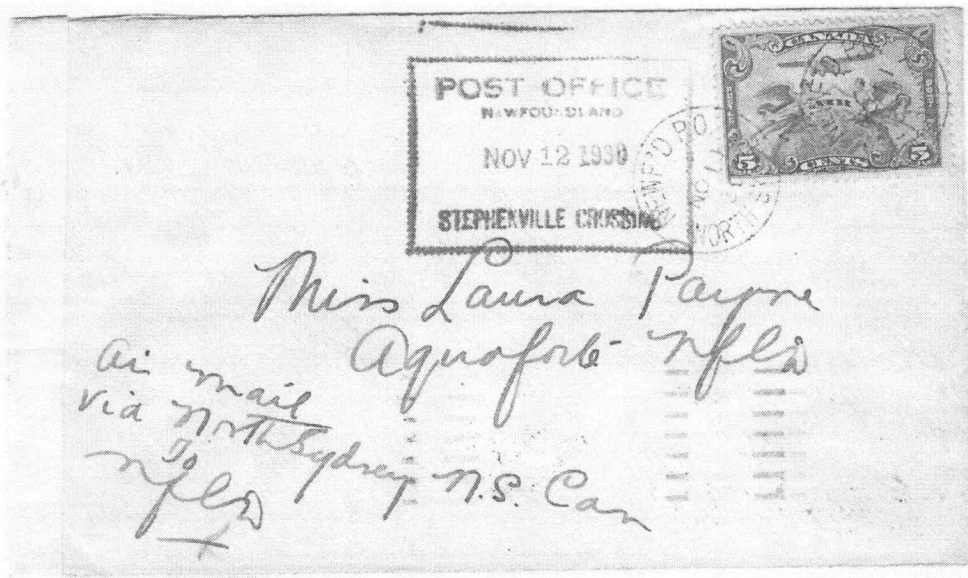 POST OFFICE
NEWFOUNDLAND
NOV 12 1930
STEPHENVILLE CROSSING
CANADA
AIR
POSTES POST
5 CENTS 5
NEWF'D P.O.
NORTH
Miss Laura Payne
Aquaforte Nfld
Air mail
via North Sydney N.S. Can
To
Nfld